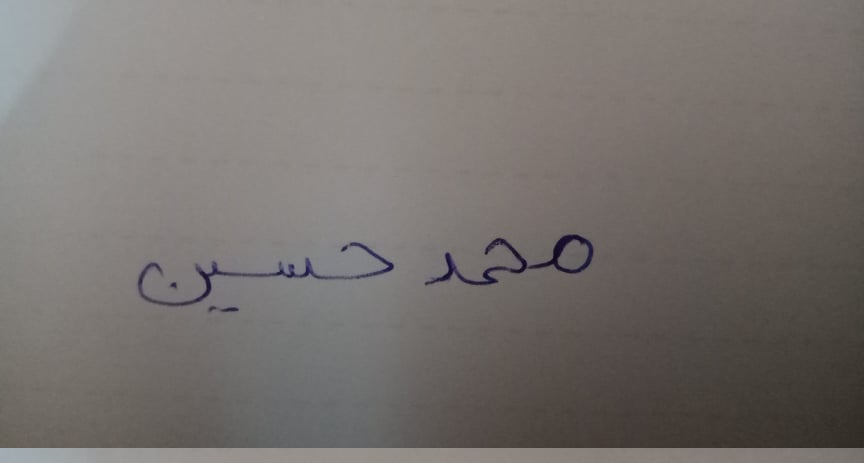 محمد حسين